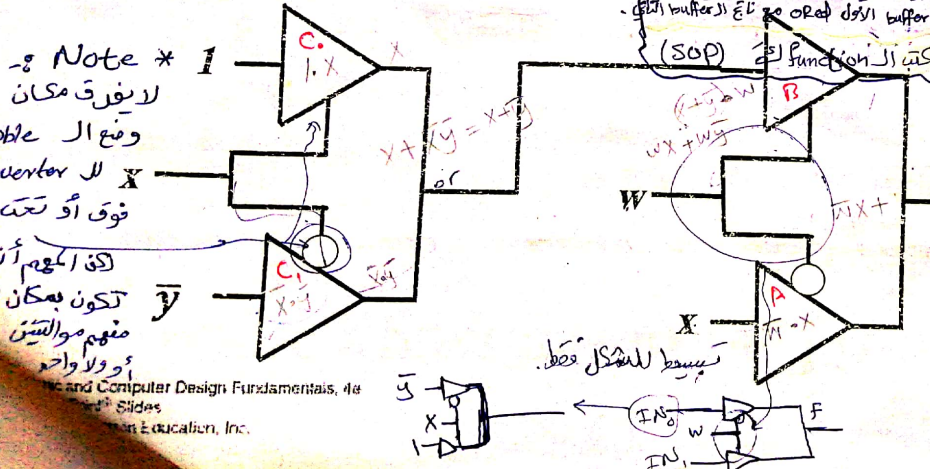 buffer الأول ORed مع ناتج الـ buffer الثاني.
كتب الـ function كـ (SOP)
* Note :-
لا يفرق مكان
وضع الـ
للـ
فوق أو تحت
لكن المهم
تكون بمكان
منهم مو التنتين
أو ولا واحد
1
C.
1.X
X
X
x + x̅y̅ = x+y̅
or
y̅
C₁
x̅.y̅
x̅.y̅
B
(x+y̅).W
wx + wy̅
W
w̅x +
X
A
w̅.x
تبسيط للشكل فقط.
y̅
X
1
IN₀
W
IN₁
F
and Computer Design Fundamentals, 4e
Slides
Education, Inc.